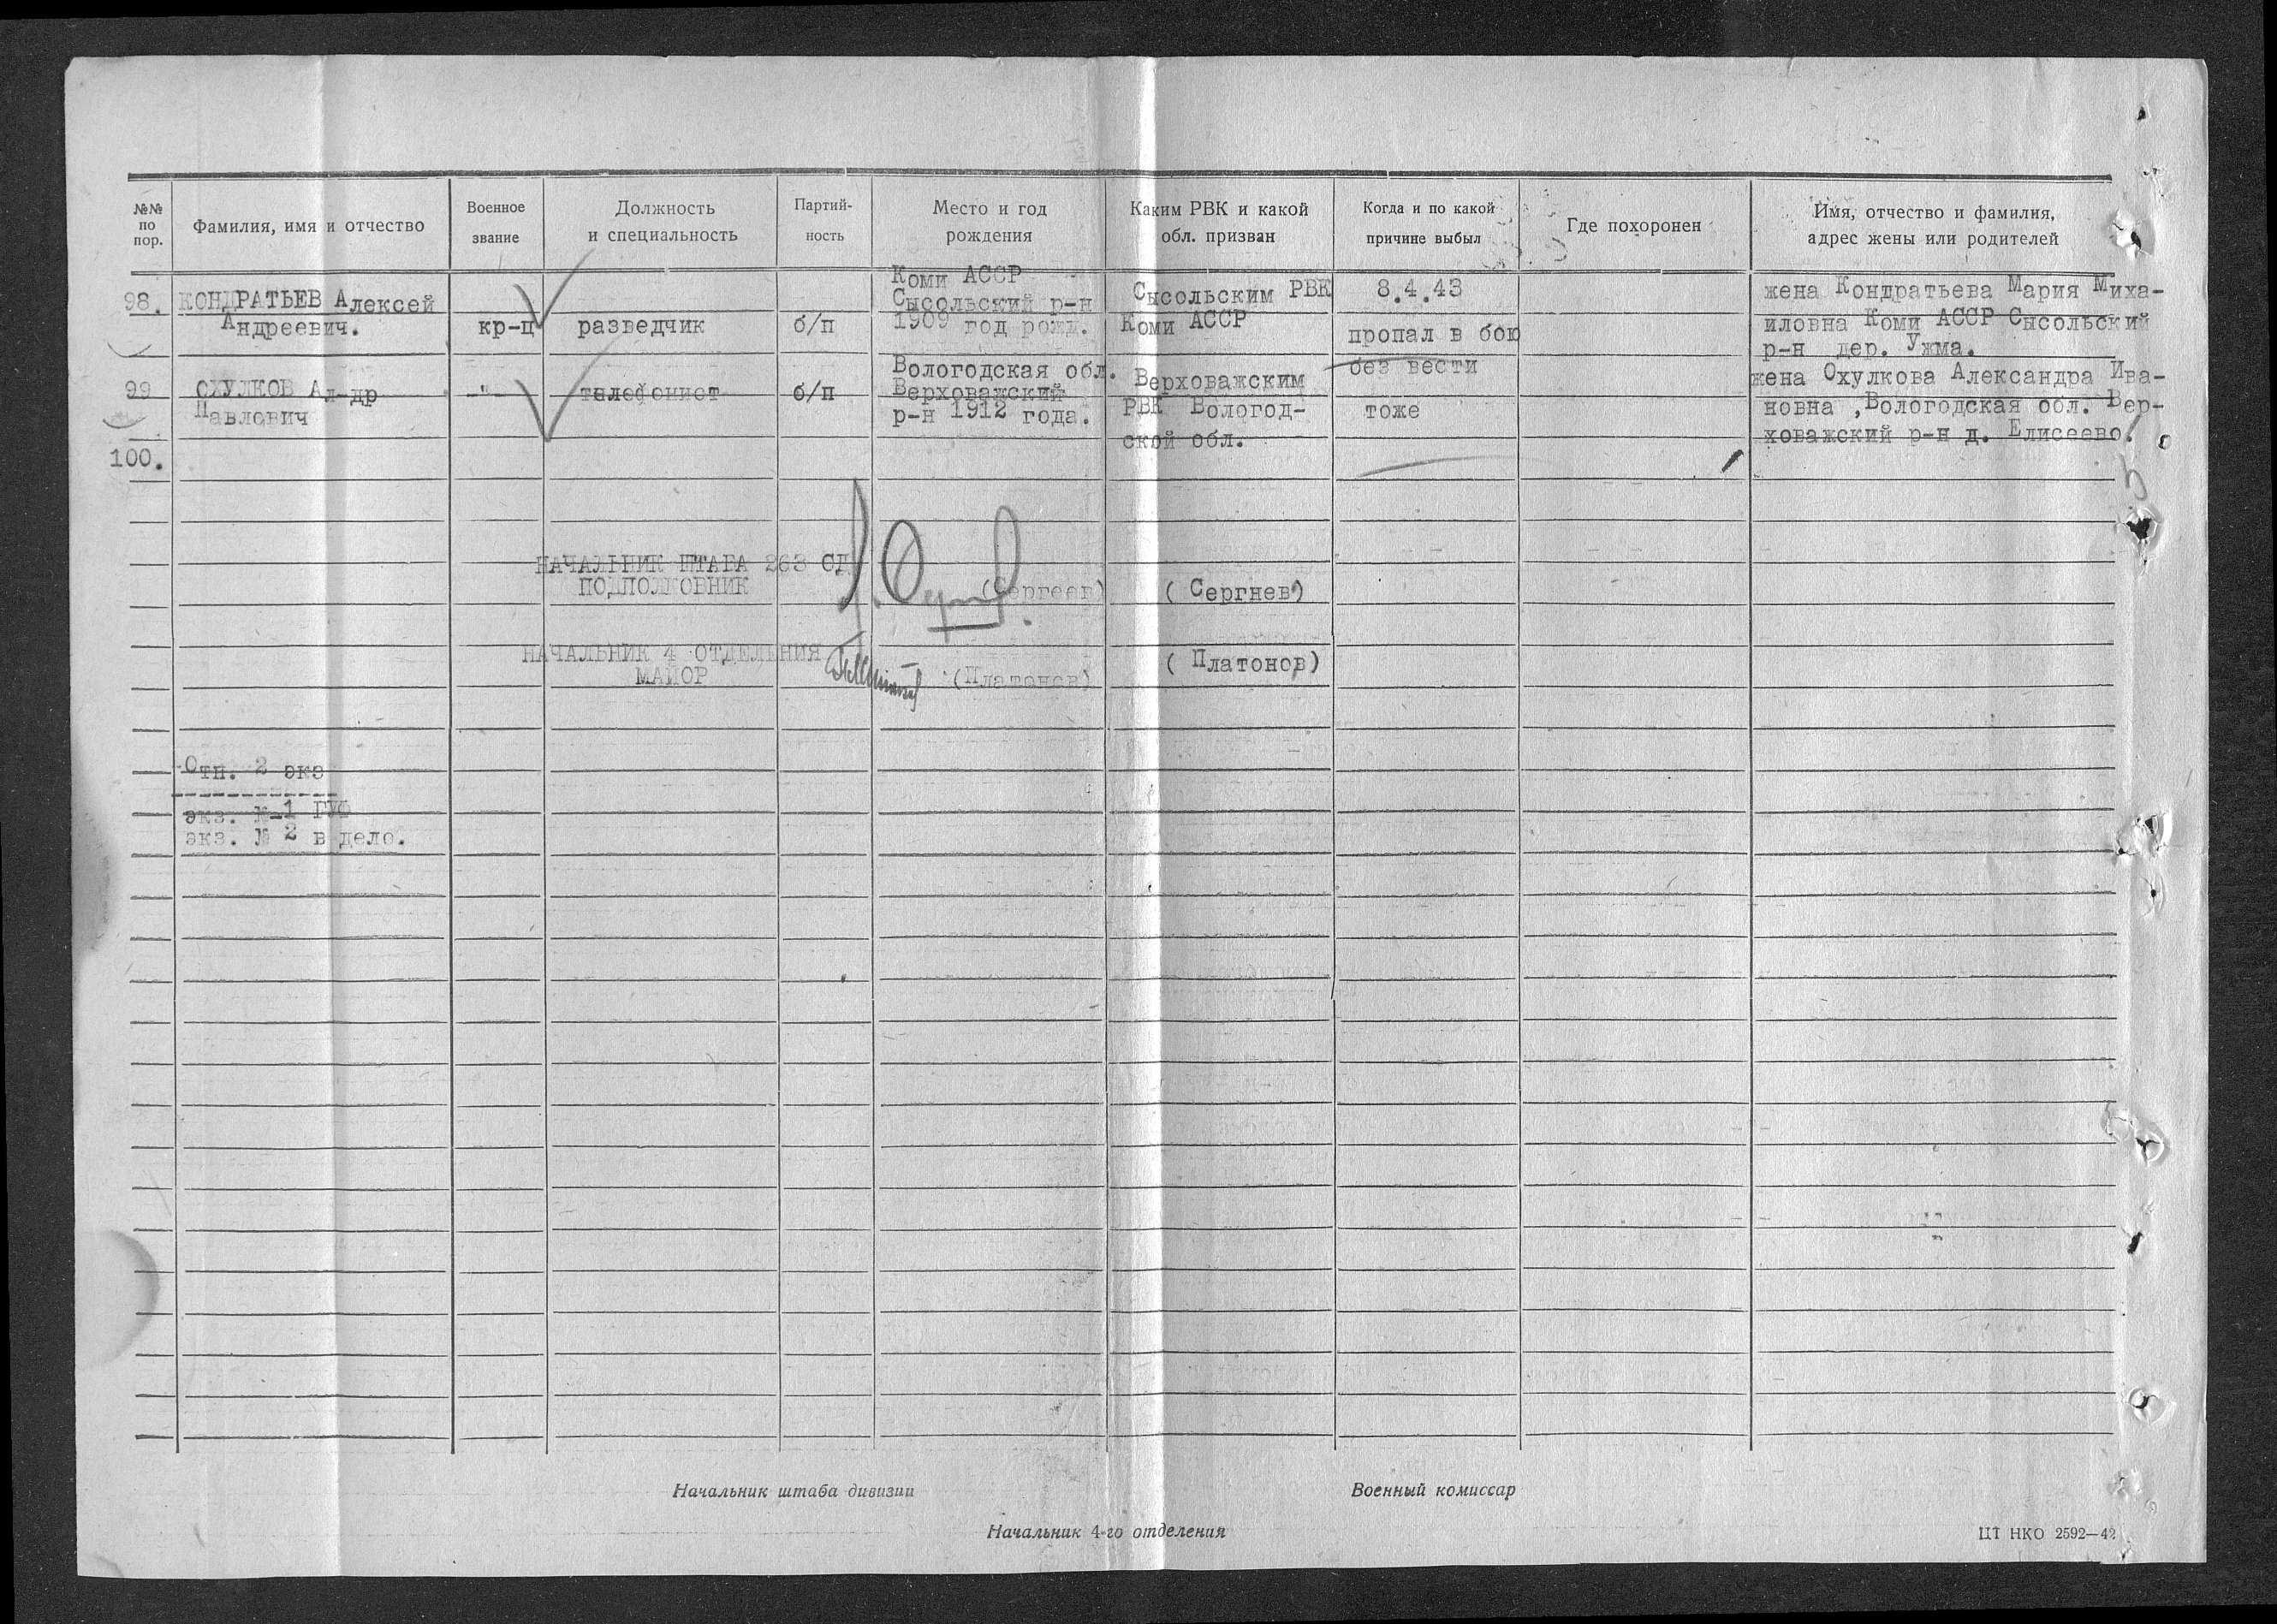 №№ по пор.
Фамилия, имя и отчество
Военное звание
Должность и специальность
Партий-ность
Место и год рождения
Каким РВК и какой обл. призван
Когда и по какой причине выбыл
Где похоронен
Имя, отчество и фамилия, адрес жены или родителей
98.
КОНДРАТЬЕВ Алексей
Андреевич.
кр-ц
разведчик
б/п
Коми АССР
Сысольский р-н
1909 год рожд.
Сысольским РВК
Коми АССР
8.4.43
пропал в бою
без вести
жена Кондратьева Мария Миха-
иловна Коми АССР Сысольский
р-н дер. Ужма.
99
ОХУЛКОВ Ал-др
Павлович
-"-
телефонист
б/п
Вологодская обл.
Верховажский
р-н 1912 года.
Верховажским
РВК Вологод-
ской обл.
тоже
жена Охулкова Александра Ива-
новна ,Вологодская обл. Вер-
ховажский р-н д. Елисеево.
100.
НАЧАЛЬНИК ШТАБА 263 СД
ПОДПОЛКОВНИК
(Сергеев)
( Сергнев)
НАЧАЛЬНИК 4 ОТДЕЛЬНИЯ
МАЙОР
(Платонов)
( Платонов)
Отп. 2 экз
экз. № 1 ГУФ
экз. № 2 в дело.
Начальник штаба дивизии
Военный комиссар
Начальник 4-го отделения
ЦТ НКО 2592—42